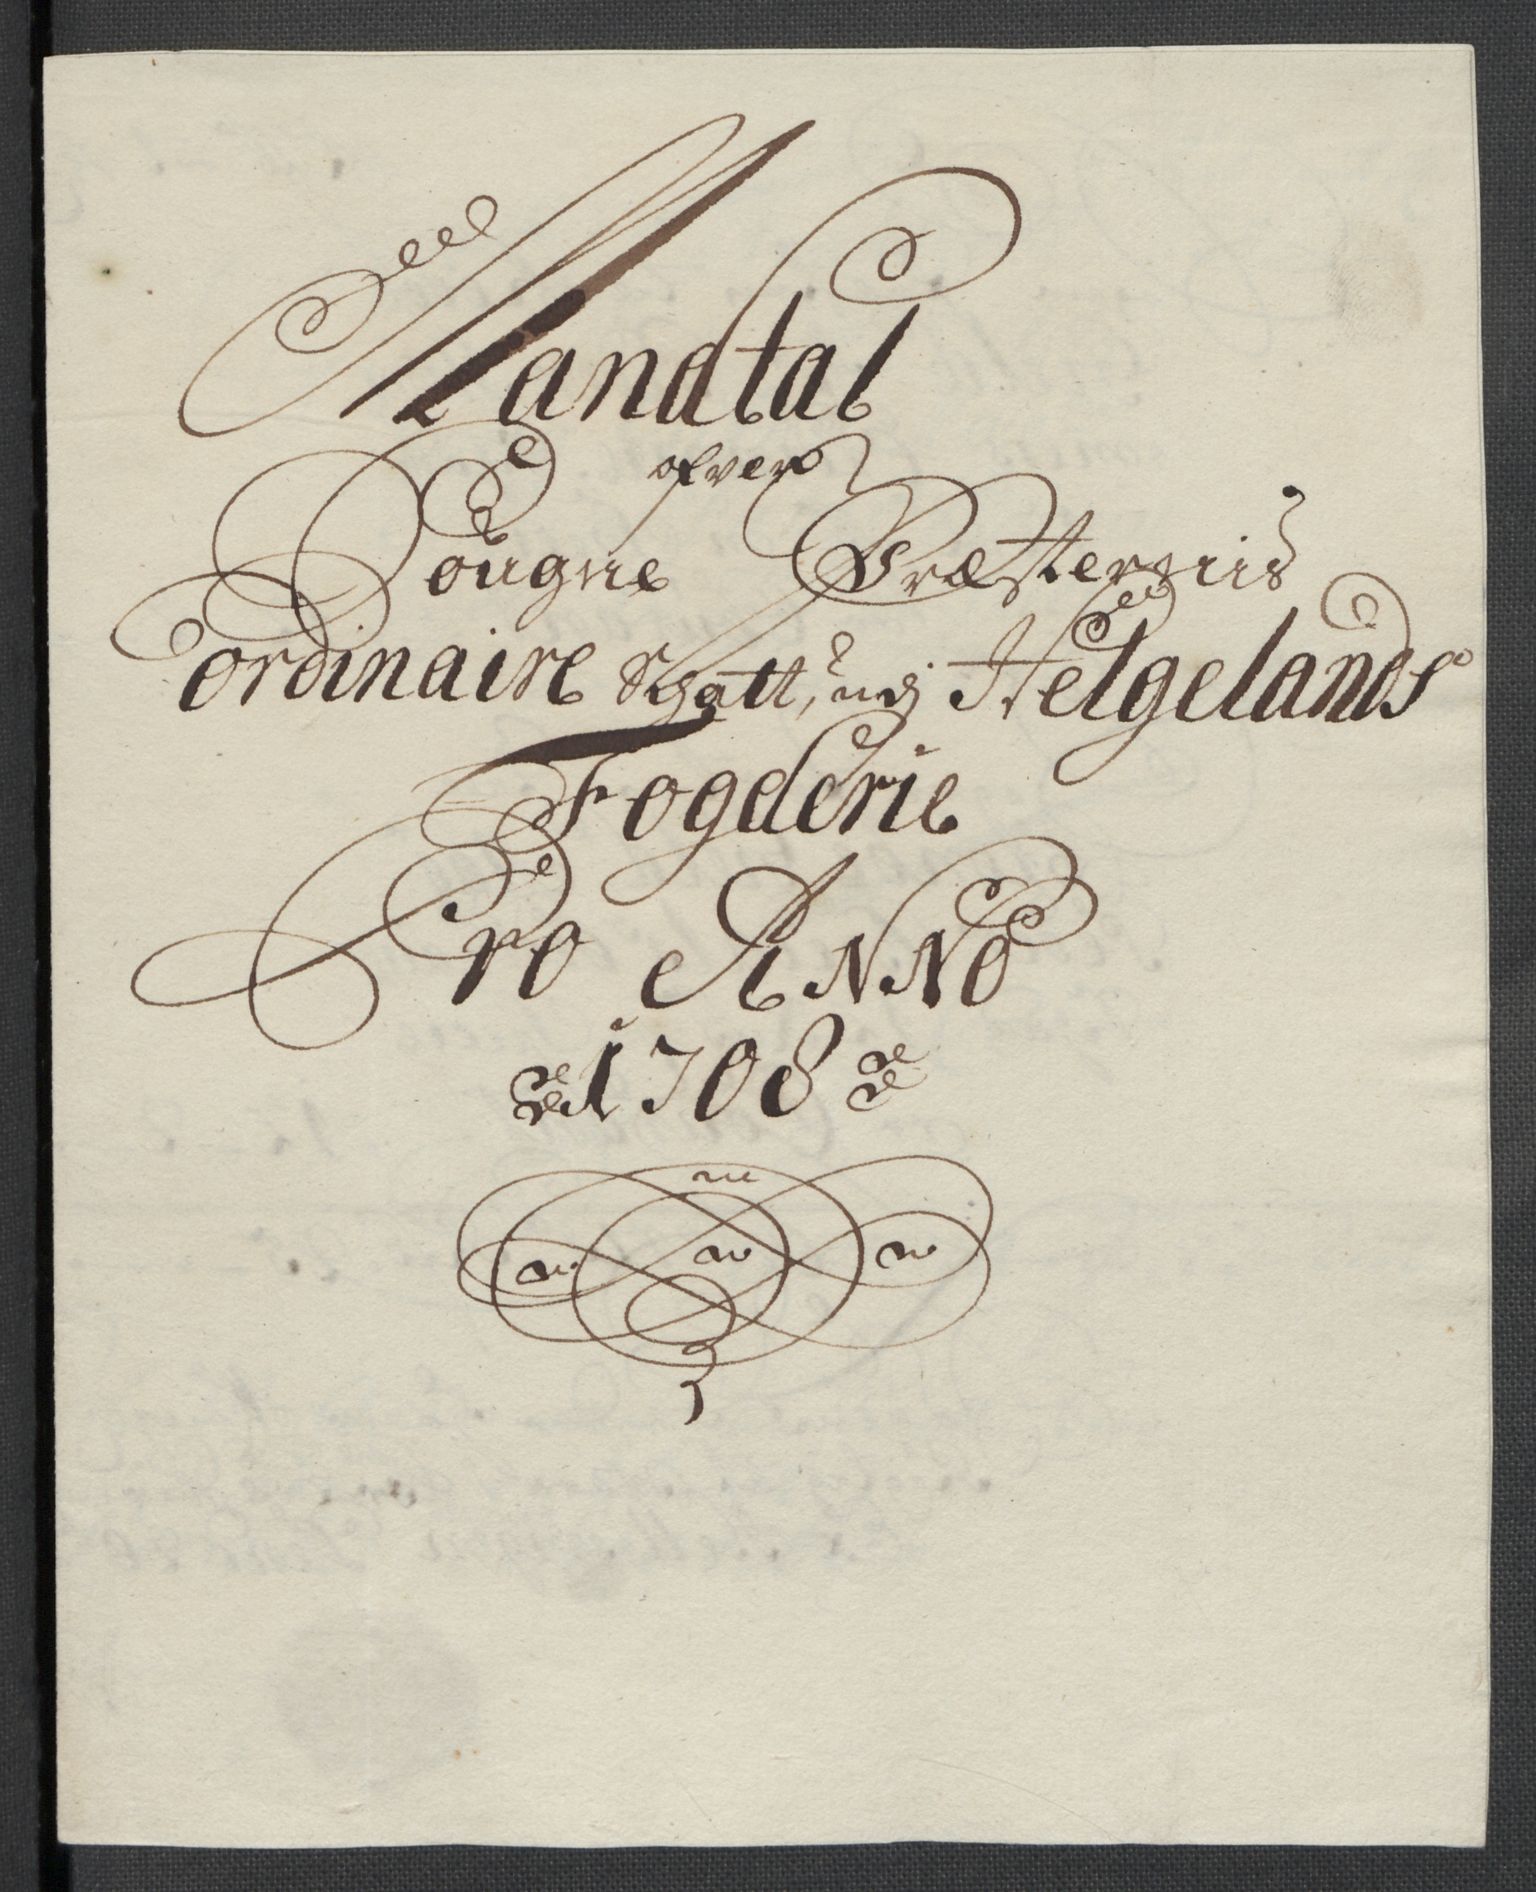 Mandtal
ofver
Dougne Præstergiis
ordinaire Schatt, udj Helgelands
Fogderie
Pro Anno
1708